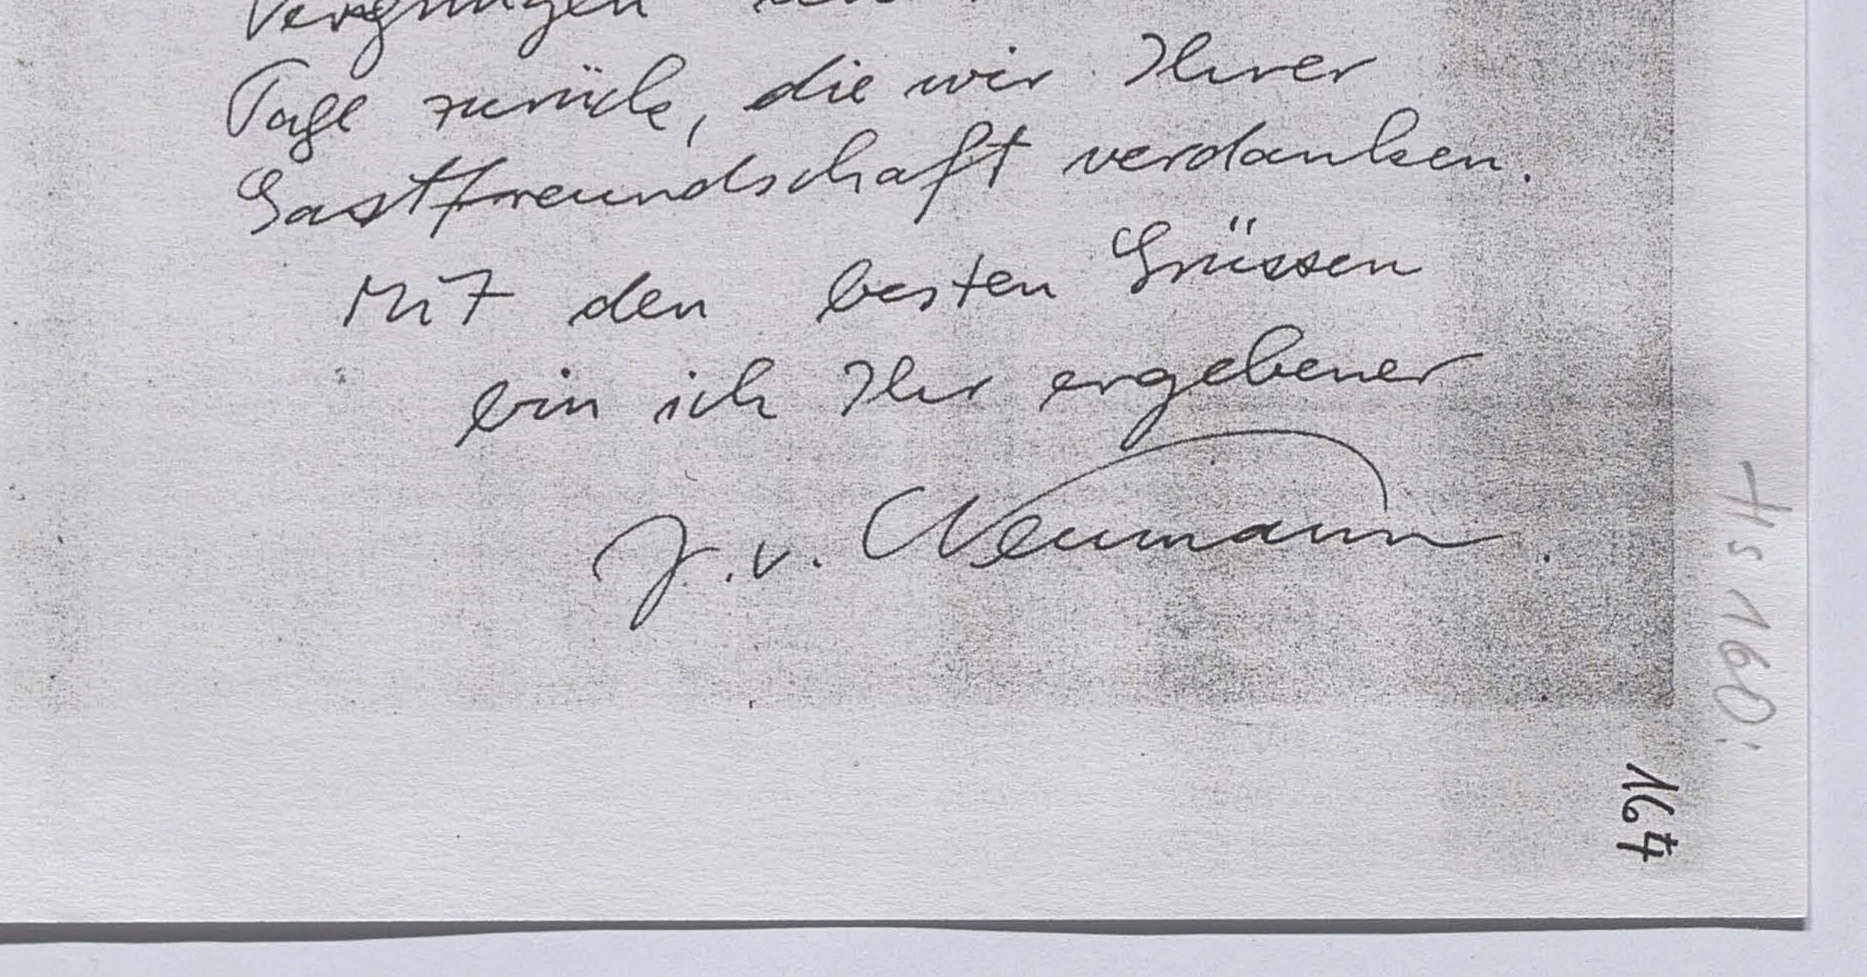 Vergnügen
Tage zurück, die wir Ihrer
Gastfreundschaft verdanken.
Mit den besten Grüssen
bin ich Ihr ergebener
J. v. Neumann.
Hs 160:
167